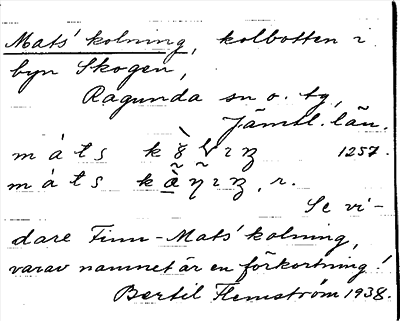 Mats' kolning, kolbotten i
byn Skogen,
Ragunda sn o. tg,
Jämtl. län.
1257.
Se vi-
dare Finn-Mats' kolning,
varav namnet är en förkortning!
Bertil Flemström 1938.